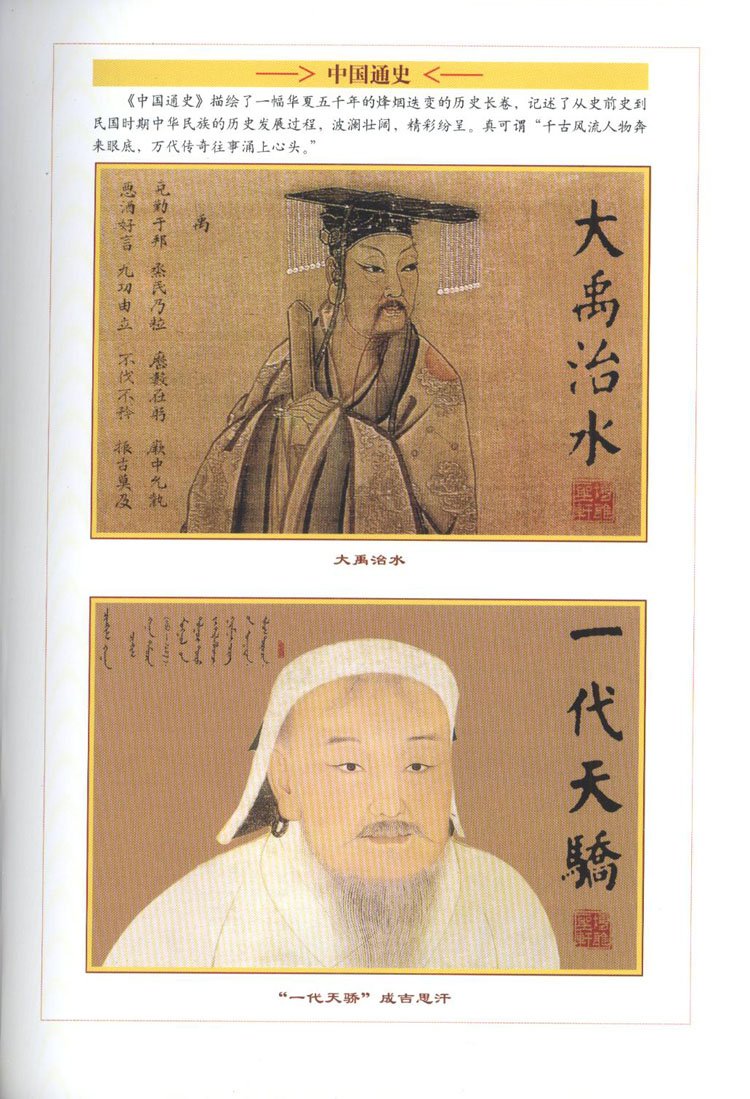 中国通史
《中国通史》描绘了一幅华夏五千年的烽烟迭变的历史长卷，记述了从史前史到
民国时期中华民族的历史发展过程，波澜壮阔，精彩纷呈。真可谓“千古风流人物奔
来眼底，万代传奇往事涌上心头。”
大禹治水
禹
克勤于邦 烝民乃粒 厥中允执
恶酒好言 九功由立 不伐不矜 振古莫及
大禹治水
一代天驕
“一代天骄”成吉思汗